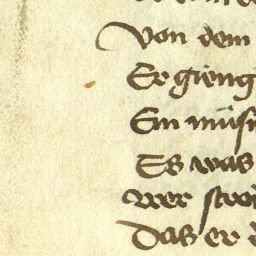 Von dem
Er gieng
Ein müs
Es was
Wer
Das er